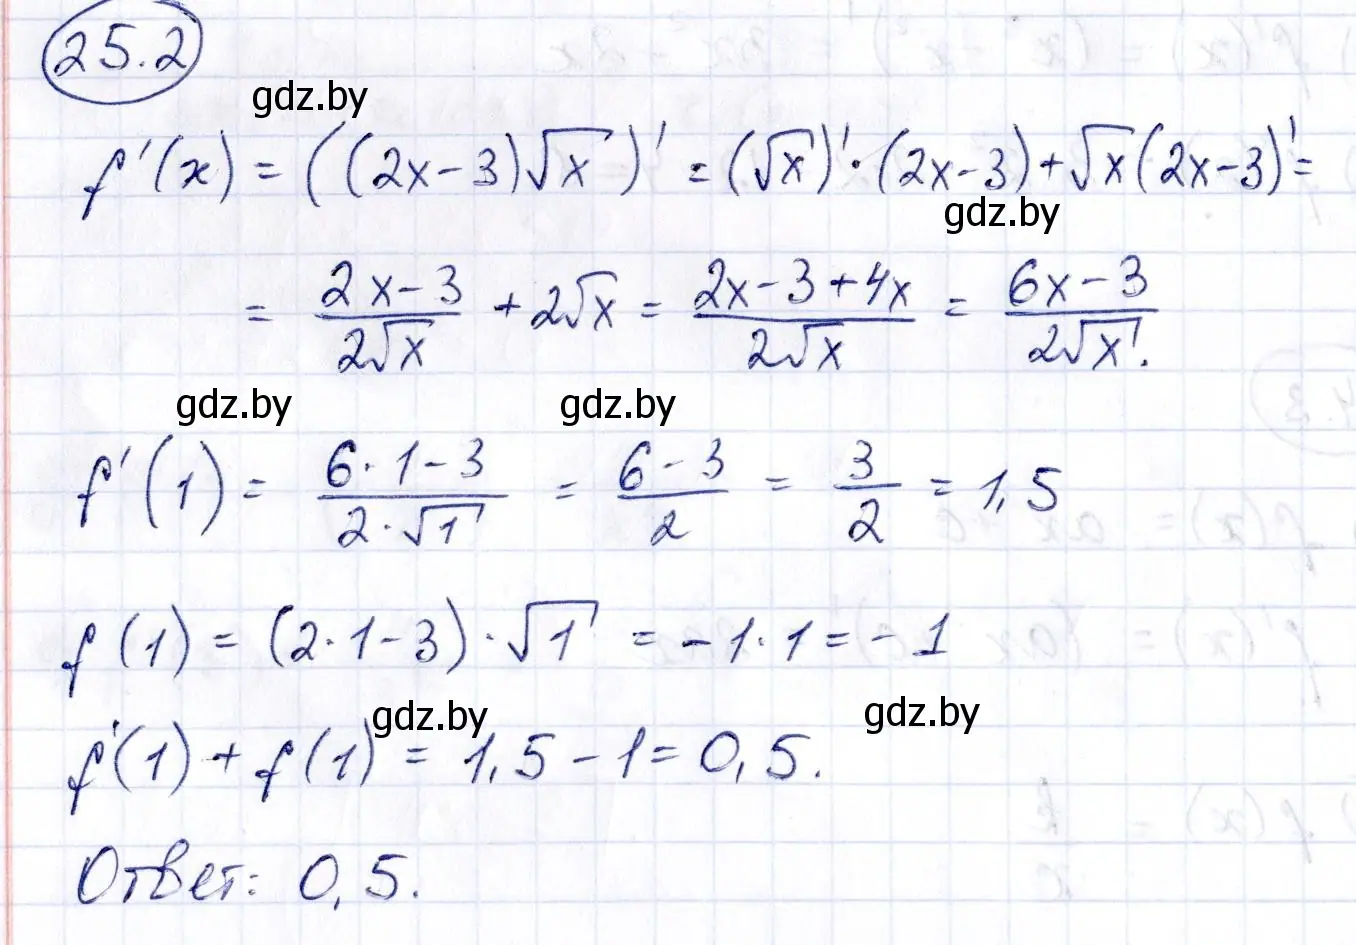 25.2
gdz.by
f'(x) = ((2x-3)√x)' = (√x)'·(2x-3)+√x(2x-3)' =
gdz.by
= (2x-3)/(2√x) + 2√x = (2x-3+4x)/(2√x) = (6x-3)/(2√x).
gdz.by gdz.by
f'(1) = (6·1-3)/(2·√1) = (6-3)/2 = 3/2 = 1,5
f(1) = (2·1-3)·√1 = -1·1 = -1
gdz.by gdz.by
f'(1) + f(1) = 1,5 - 1 = 0,5.
Ответ: 0,5.